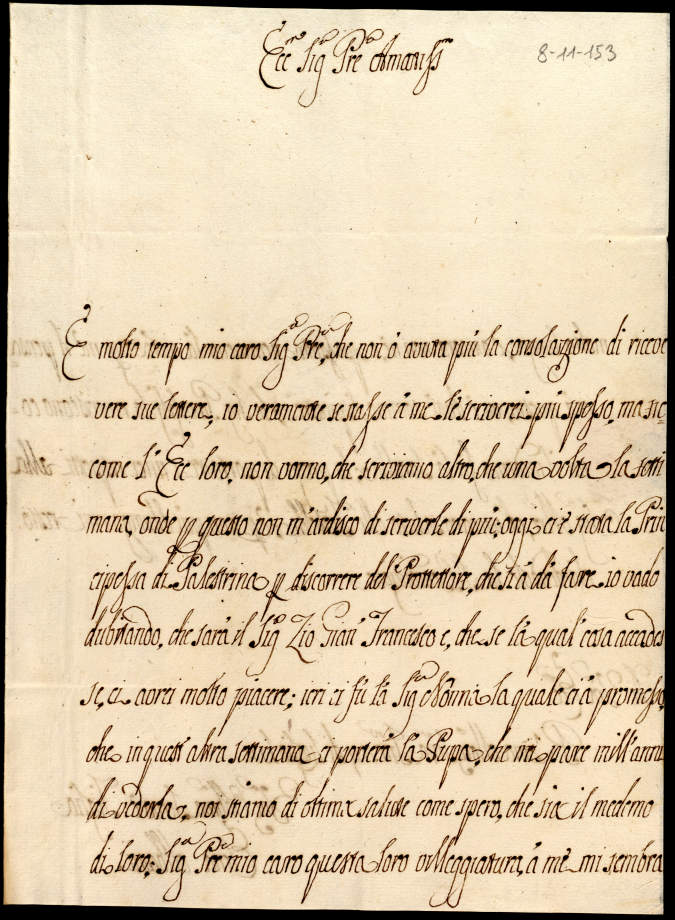 Ecc.mo Sig.r Pre Amatiss.mo
8-11-153
È molto tempo mio caro Sig.r Pre, che non ò avuta più la consolazione di riceve
vere sue lettere, io veramente se stasse à me le scriverei più spesso, ma sic
come l'Ecc loro, non vonno, che scriviamo altro, che una volta la setti
mana, onde p questo non m'ardisco di scriverle di più; oggi ci è stata la Prin
cipessa di Palestrina p discorrere del Prottettore, che si à dà fare, io vado
dubitando, che sarà il Sig.r Zio Gian Francesco e, che se la qual cosa accades
se, ci avrei molto piacere; ieri ci fù la Sig.a Nonna la quale ci à promesso,
che in quest'altra settimana ci porterà la Pupa, che mi pare mill'anni
di vederla, noi stiamo di ottima salute come spero, che sia il medemo
di loro; Sig.r Pre mio caro questa loro villeggiatura, à me mi sembra